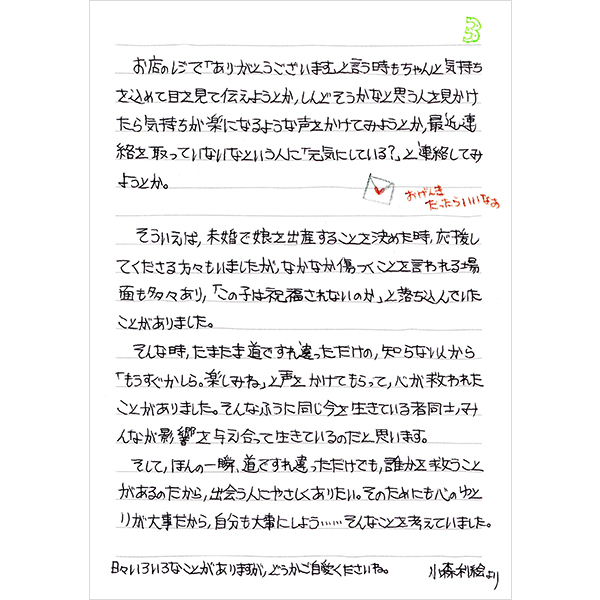 3
お店のレジで「ありがとうございます」と言う時もちゃんと気持ち
を込めて目を見て伝えようとか、しんどそうかなと思う人を見かけ
たら気持ちが楽になるような声をかけてみようとか、最近連
絡を取っていないなという人に「元気にしている?」と連絡してみ
ようとか。
おげんき
だったらいいなぁ
そういえば、未婚で娘を出産することを決めた時、応援し
てくださる方々もいましたが、なかなか傷つくことを言われる場
面も多々あり、「この子は祝福されないのか」と落ち込んでいた
ことがありました。
そんな時、たまたま道ですれ違っただけの、知らない人から
「もうすぐかしら。楽しみね」と声をかけてもらって、心が救われた
ことがありました。そんなふうに同じ今を生きている者同士、み
んなが影響を与え合って生きているのだと思います。
そして、ほんの一瞬、道ですれ違っただけでも、誰かを救うこと
があるのだから、出会う人にやさしくありたい。そのためにも心のゆと
りが大事だから、自分も大事にしよう……そんなことを考えていました。
日々いろいろなことがありますが、どうかご自愛くださいね。
小森利絵より